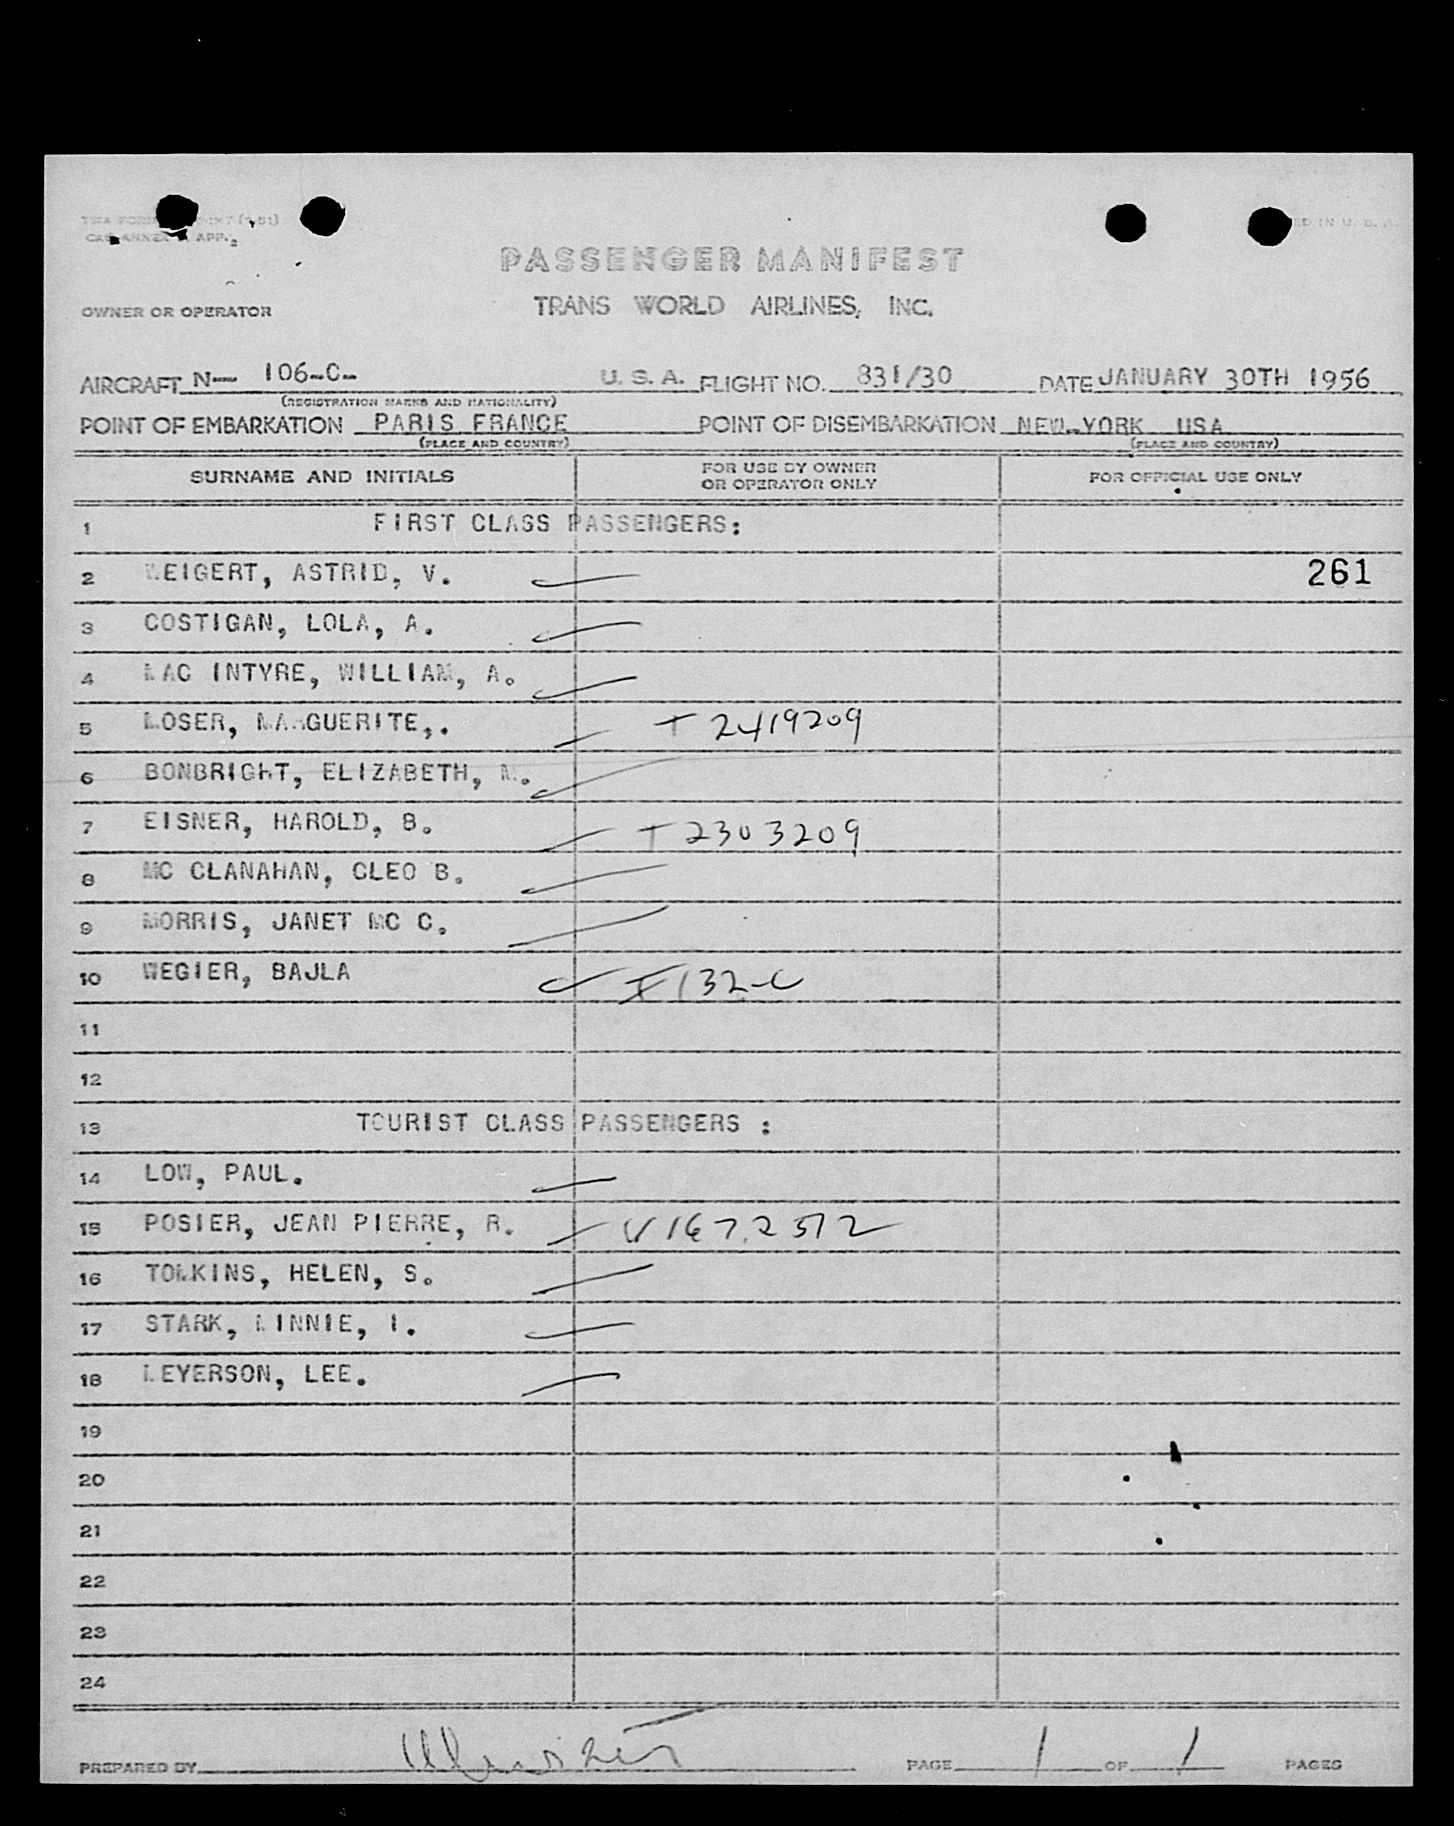 TWA FORM
CAB ANNEX APP. 2
PASSENGER MANIFEST
OWNER OR OPERATOR TRANS WORLD AIRLINES, INC.
AIRCRAFT N— 106-C- U. S. A. FLIGHT NO. 831/30 DATE JANUARY 30TH 1956
(REGISTRATION MARKS AND NATIONALITY)
POINT OF EMBARKATION PARIS FRANCE POINT OF DISEMBARKATION NEW-YORK USA
(PLACE AND COUNTRY) (PLACE AND COUNTRY)
SURNAME AND INITIALS FOR USE BY OWNER OR OPERATOR ONLY FOR OFFICIAL USE ONLY
1 FIRST CLASS PASSENGERS:
2 WEIGERT, ASTRID, V. 261
3 COSTIGAN, LOLA, A.
4 MAC INTYRE, WILLIAM, A.
5 MOSER, MARGUERITE,. T 2419209
6 BONBRIGHT, ELIZABETH, M.
7 EISNER, HAROLD, B. T 2303209
8 MC CLANAHAN, CLEO B.
9 MORRIS, JANET MC C.
10 WEGIER, BAJLA I 132-C
11
12
13 TOURIST CLASS PASSENGERS :
14 LOW, PAUL.
15 POSIER, JEAN PIERRE, R. V 1672512
16 TOMKINS, HELEN, S.
17 STARK, MINNIE, I.
18 MEYERSON, LEE.
19
20
21
22
23
24
PREPARED BY PAGE 1 OF 1 PAGES